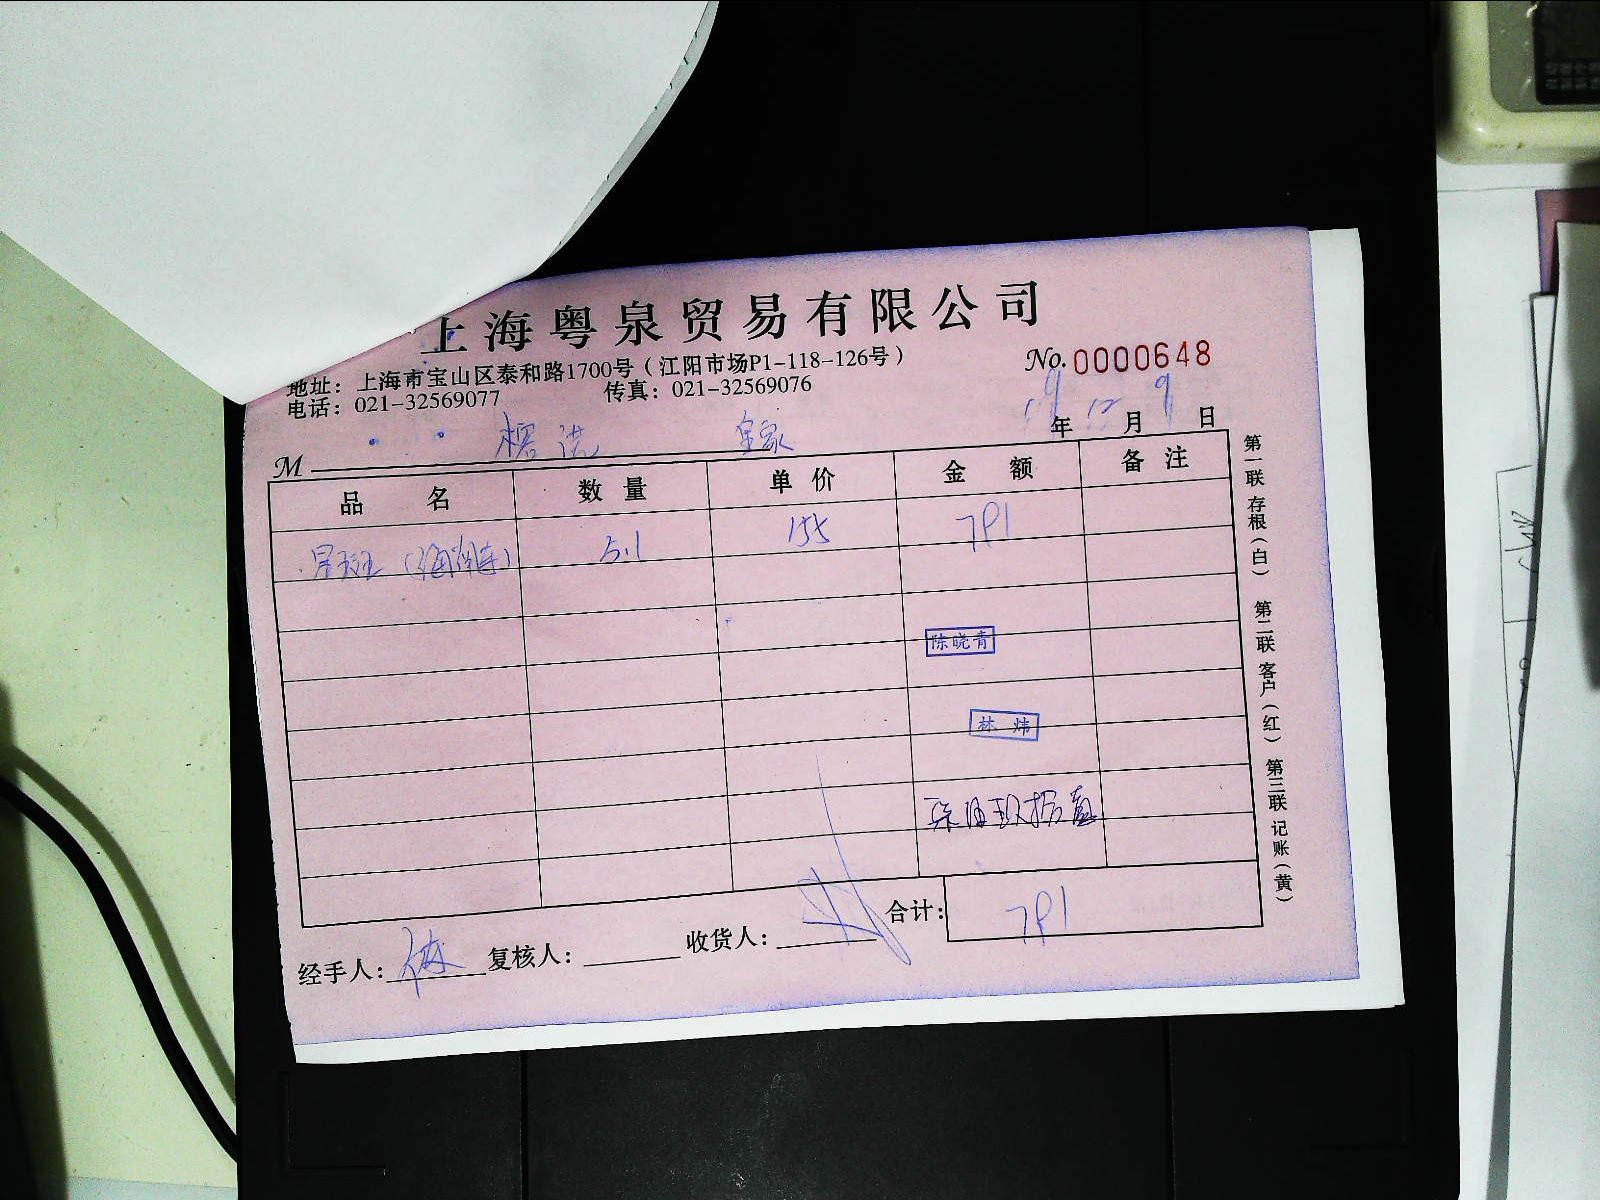 上海粤泉贸易有限公司
地址：上海市宝山区泰和路1700号（江阳市场P1-118-126号）
电话：021-32569077 传真：021-32569076
No. 0000648
19年12月9日
M
品名 数量 单价 金额 备注
星斑 5.1 155 791
陈晓青
林炜
柒佰玖拾壹
合计：791
经手人： 复核人： 收货人：
第一联存根（白） 第二联客户（红） 第三联记账（黄）